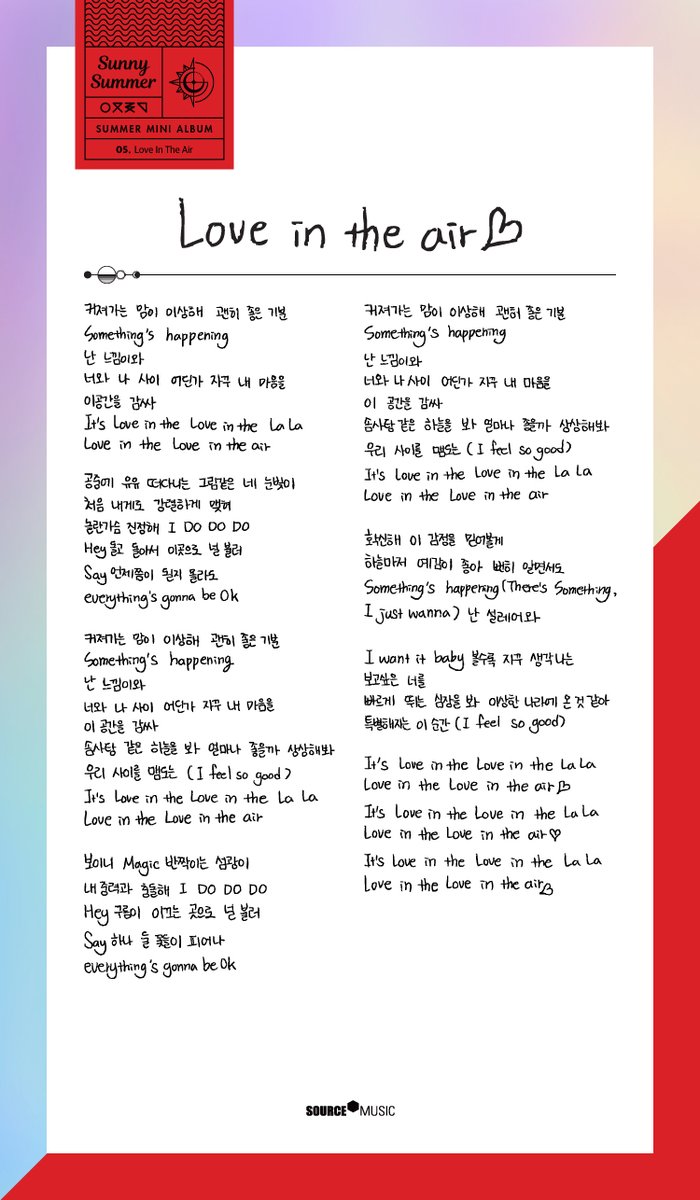 Sunny
Summer
SUMMER MINI ALBUM
05. Love In The Air
Love in the air♡
커져가는 맘이 이상해 괜히 좋은 기분
Something's happening
난 느낌이와
너와 나 사이 어딘가 자꾸 내 마음을
이공간을 감싸
It's Love in the Love in the La La
Love in the Love in the air
공중에 유유 떠다니는 그림같은 네 눈빛이
처음 내게도 강렬하게 맺혀
놀란가슴 진정해 I DO DO DO
Hey 돌고 돌아서 이곳으로 널 불러
Say 언제쯤이 될지 몰라도
everything's gonna be Ok
커져가는 맘이 이상해 괜히 좋은 기분
Something's happening
난 느낌이와
너와 나 사이 어딘가 자꾸 내 마음을
이 공간을 감싸
솜사탕 같은 하늘을 봐 얼마나 좋을까 상상해봐
우리 사이를 맴도는 (I feel so good)
It's Love in the Love in the La La
Love in the Love in the air
보이니 Magic 반짝이는 섬광이
내 중력과 충돌해 I DO DO DO
Hey 구름이 이끄는 곳으로 널 불러
Say 하나 둘 꽃들이 피어나
everything's gonna be Ok
커져가는 맘이 이상해 괜히 좋은 기분
Something's happening
난 느낌이와
너와 나 사이 어딘가 자꾸 내 마음을
이 공간을 감싸
솜사탕 같은 하늘을 봐 얼마나 좋을까 상상해봐
우리 사이를 맴도는 (I feel so good)
It's Love in the Love in the La La
Love in the Love in the air
확신해 이 감정을 믿어볼게
하늘마저 예감이 좋아 뻔히 알면서도
Something's happening (There's Something,
I just wanna) 난 설레어와
I want it baby 볼수록 자꾸 생각나는
보고싶은 너를
빠르게 뛰는 심장을 봐 이상한 나라에 온 것 같아
특별해지는 이 순간 (I feel so good)
It's Love in the Love in the La La
Love in the Love in the air♡
It's Love in the Love in the La La
Love in the Love in the air♡
It's Love in the Love in the La La
Love in the Love in the air♡
SOURCE MUSIC